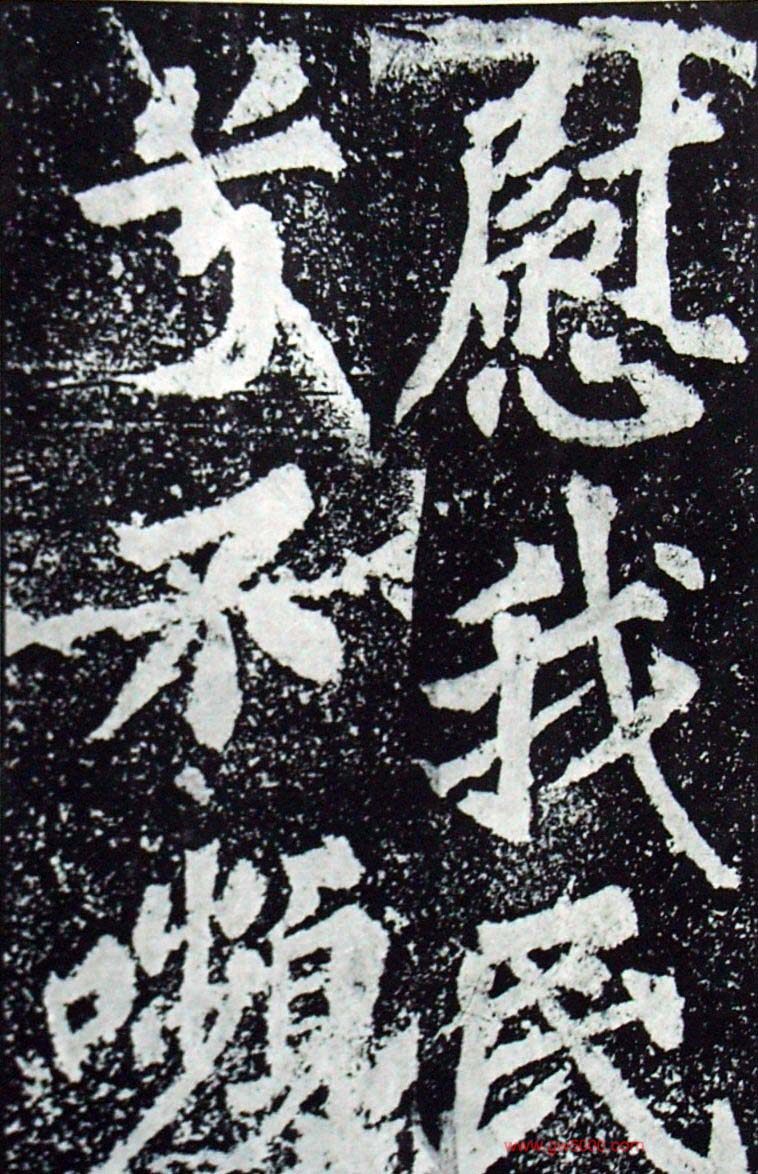 慰我民
兮不嚬
www.gw2000.com